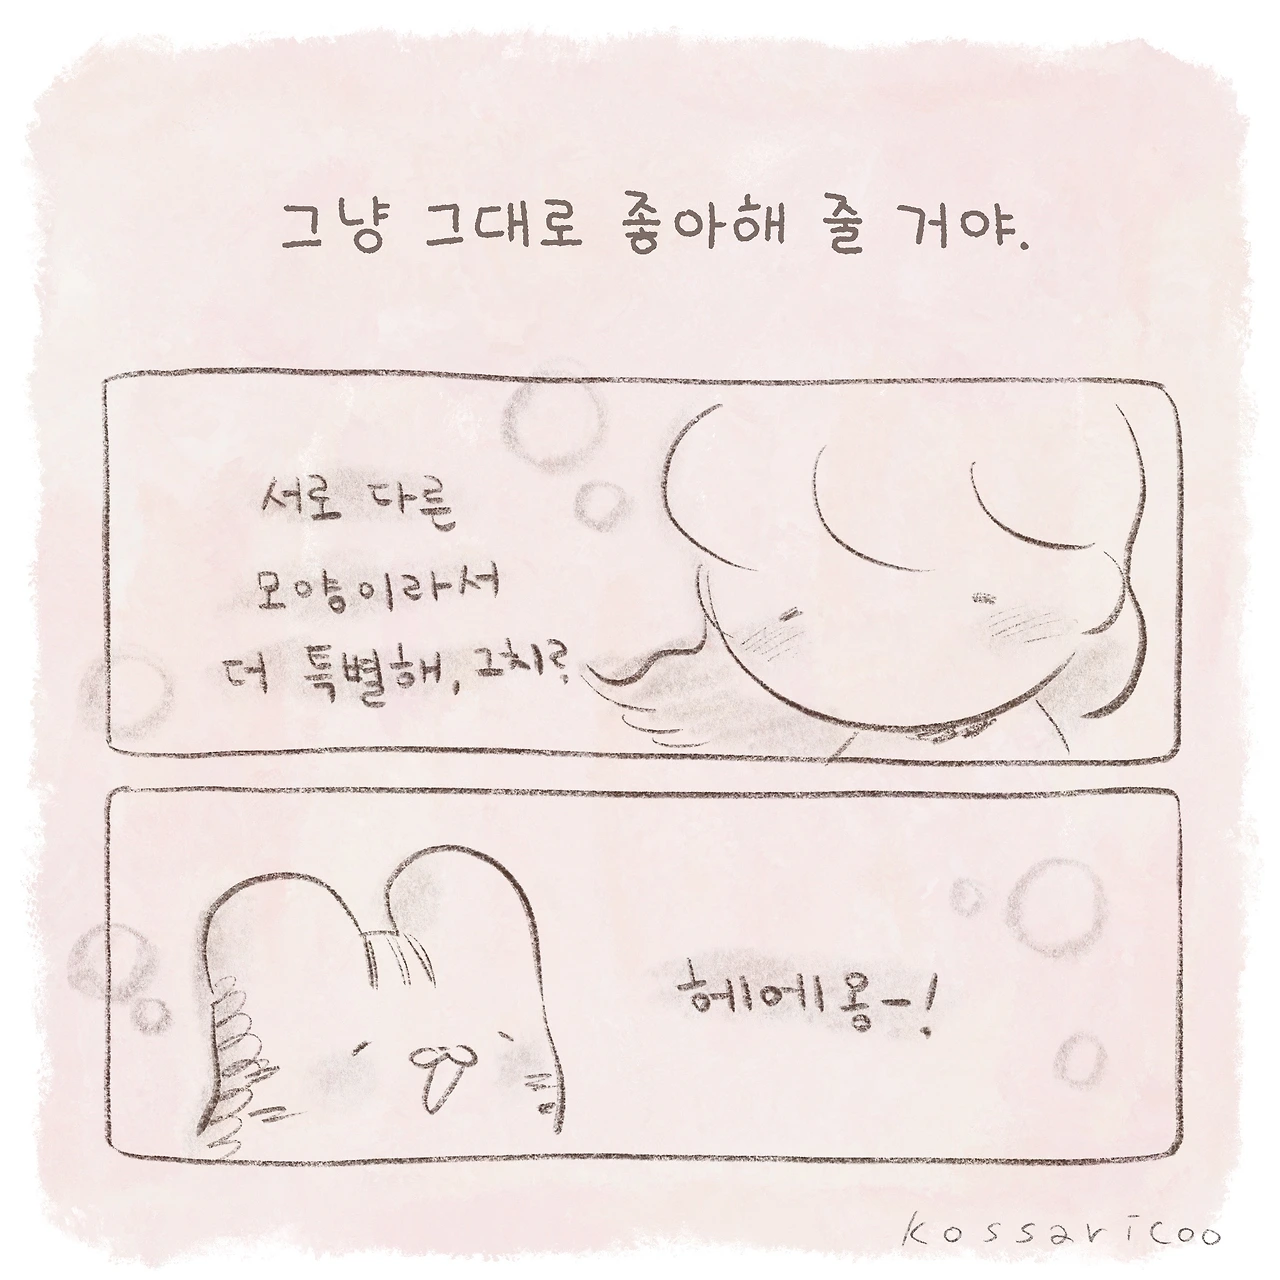 그냥 그대로 좋아해 줄 거야.
서로 다른
모양이라서
더 특별해, 그치?
헤에옹-!
kossaricoo